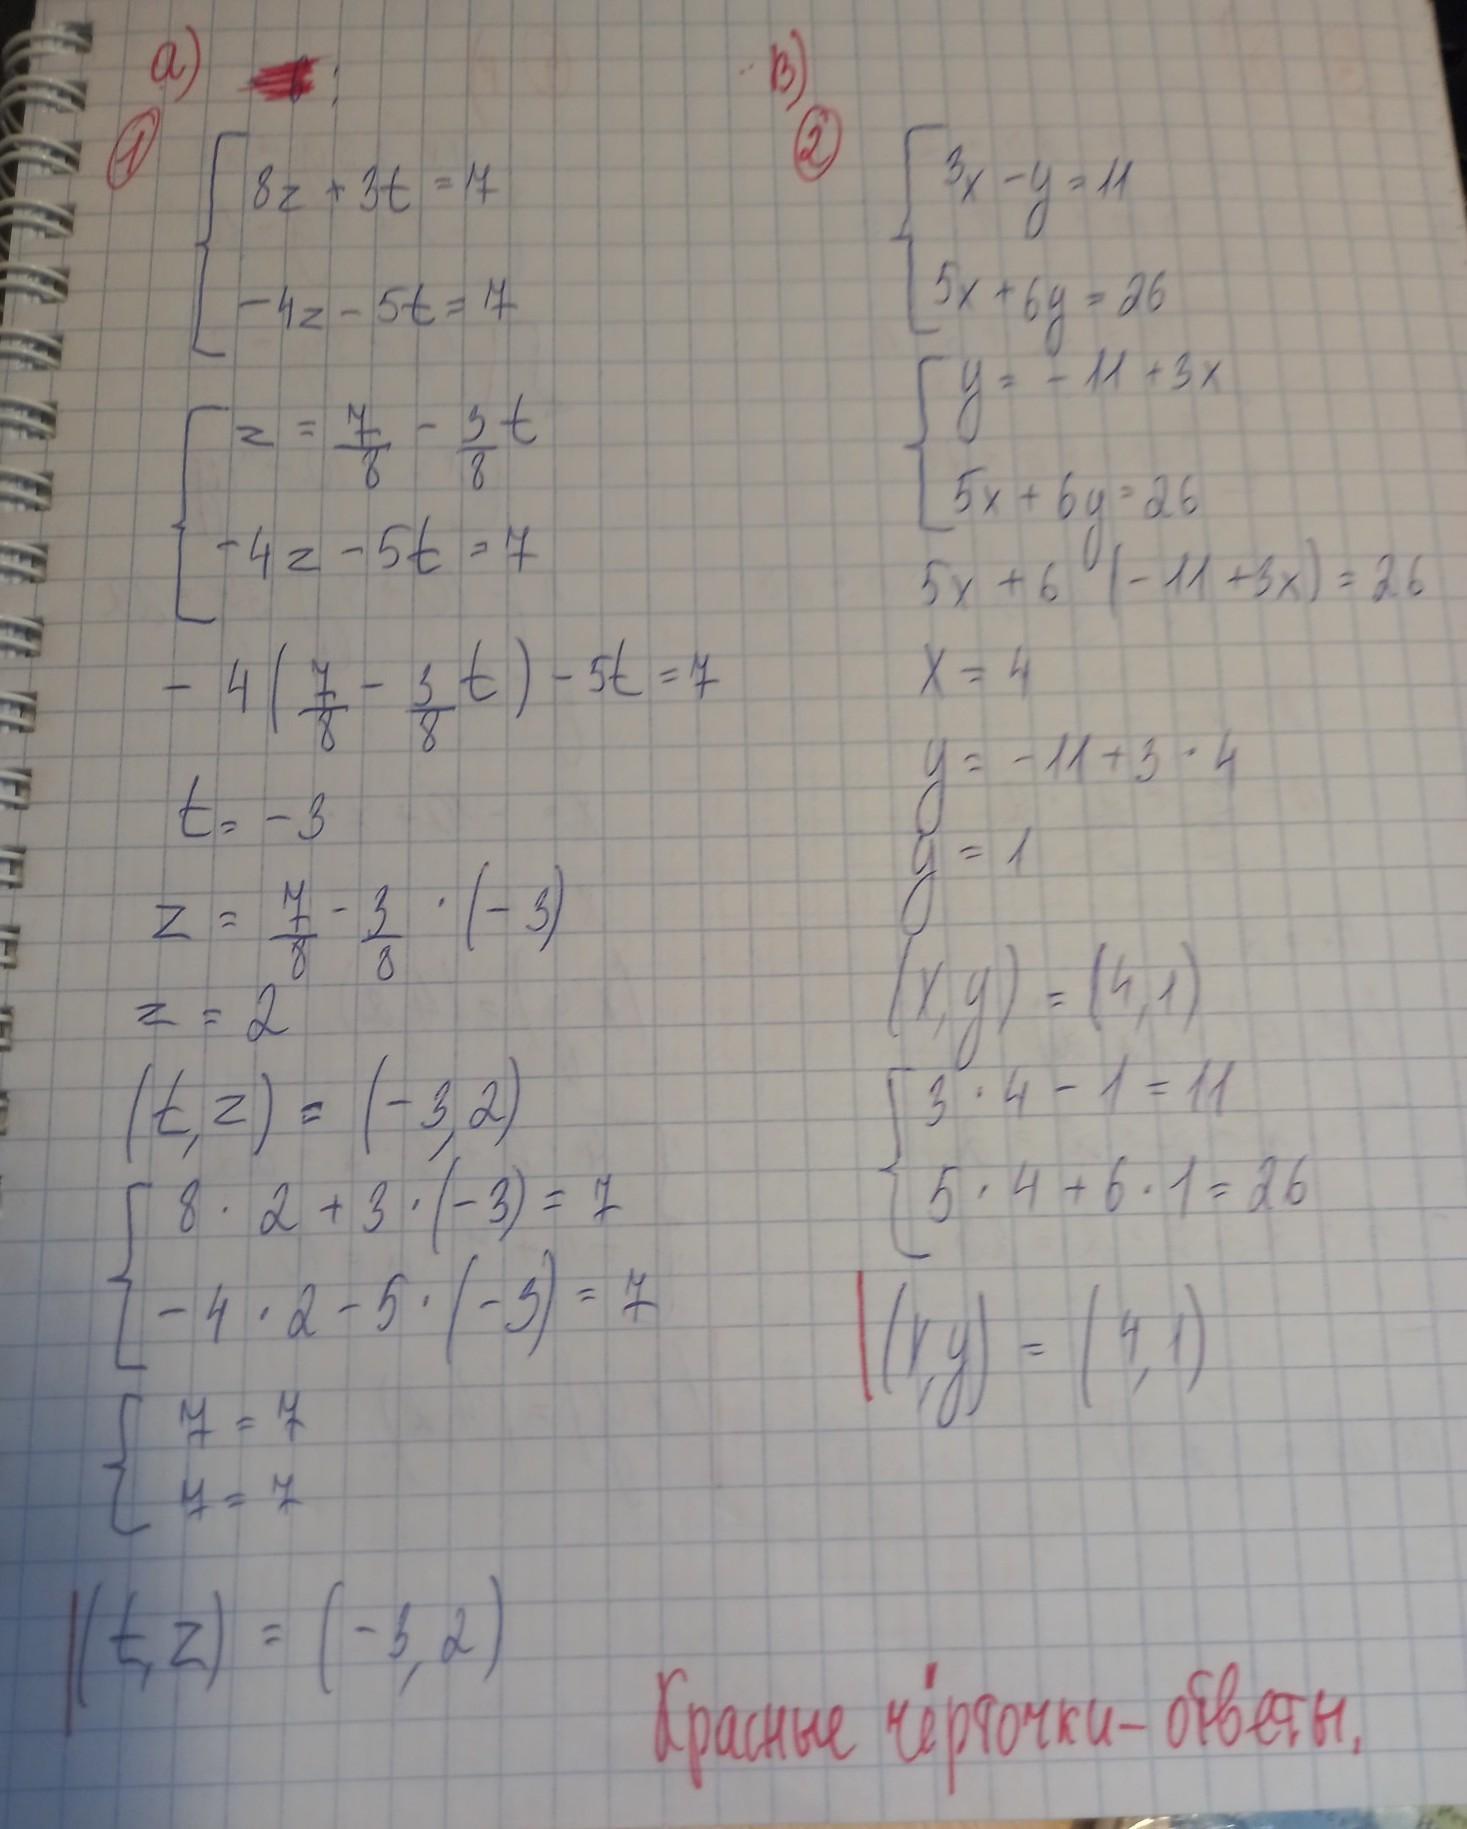 а)
1
8z + 3t = 7
-4z - 5t = 7
z = 7/8 - 3/8 t
-4z - 5t = 7
- 4(7/8 - 3/8 t) - 5t = 7
t = -3
z = 7/8 - 3/8 · (-3)
z = 2
(t,z) = (-3,2)
8 · 2 + 3 · (-3) = 7
-4 · 2 - 5 · (-3) = 7
7 = 7
7 = 7
(t,z) = (-3,2)
в)
2
3x - y = 11
5x + 6y = 26
y = -11 + 3x
5x + 6y = 26
5x + 6 (-11 + 3x) = 26
x = 4
y = -11 + 3 · 4
y = 1
(x,y) = (4,1)
3 · 4 - 1 = 11
5 · 4 + 6 · 1 = 26
(x,y) = (4,1)
Красные чёрточки - ответы.